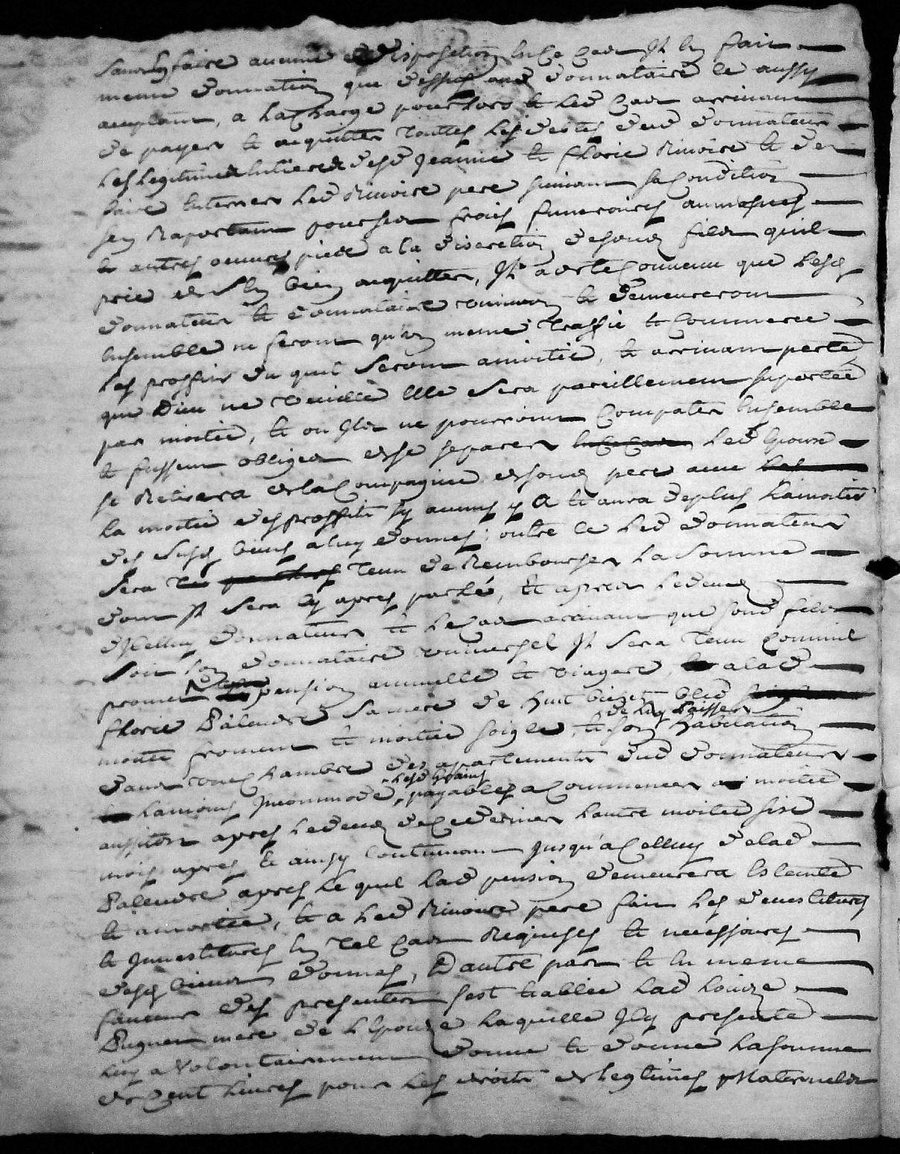 sans luy faire aucune disposition en ce cas Jl luy fait
meme donnation que dessus aud donnataire le aussy
acceptant, a la charge pour lors & led cas arrivant
de payer & acquitter toutes les dettes dud donnateur
les legitimes entieres desd Jeanne & florie Rivoire & de
faire enterrer led Rivoire pere suivant sa condition
sen Raportant pour ses frais funeraires aumosnes
& autres oeuvres pies a la discretion de sond fils quil
prie de sen bien acquitter, Jl a este Convenu que lesd
donnateur & donnataire vivront & demeureront
ensemble ne feront qu'un meme traffic & Commerce
les proffits du quel seront a moitié, & arrivant perte
que Dieu ne veuille Elle sera pareillement suportée
par moitié, & ou Jls ne pourroint Compatir ensemble
& fussent obligés de se separer led Epoux
se Retirera de la Compagnie de sond pere avec
la moitié des proffits sy aucuns y a & aura de plus la moitié
des susd biens a luy donnés; outre ce led donnateur
sera tenu de Rembourser la somme
dont Jl sera cy apres parlé, & apres le deces
d'Jcelluy donnateur & le cas arrivant que sond fils
soit son donnataire universel Jl sera tenu Comme
promet pension annuelle & viagere, a lad
florie Palandre sa mere de huit bichets bled
moitié froment & moitié soigle & son habitation
de luy laisser
dans une chambre des apartements dud donnateur
la moins Jncommode, payables a Commencer moitié
lesd grains
aussitôt apres le deces de Ce dernier l'autre moitié six
mois apres & ainsy Continuant jusqu'a Celluy de lad
Palandre apres le quel lad pension demeurera Esteinte
& amortie, & a led Rivoire pere fait les devestitures
& Jnvestitures en tel cas Requises & necessaires
desd biens donnés, D'autre part & en meme
faveur des presentes s'est Establie lad Louize
Pugnet mere de l'Epouze laquelle Jcy presente
luy a volontairement donné & donne la somme
de Cent livres pour les droits de legitimes Maternels